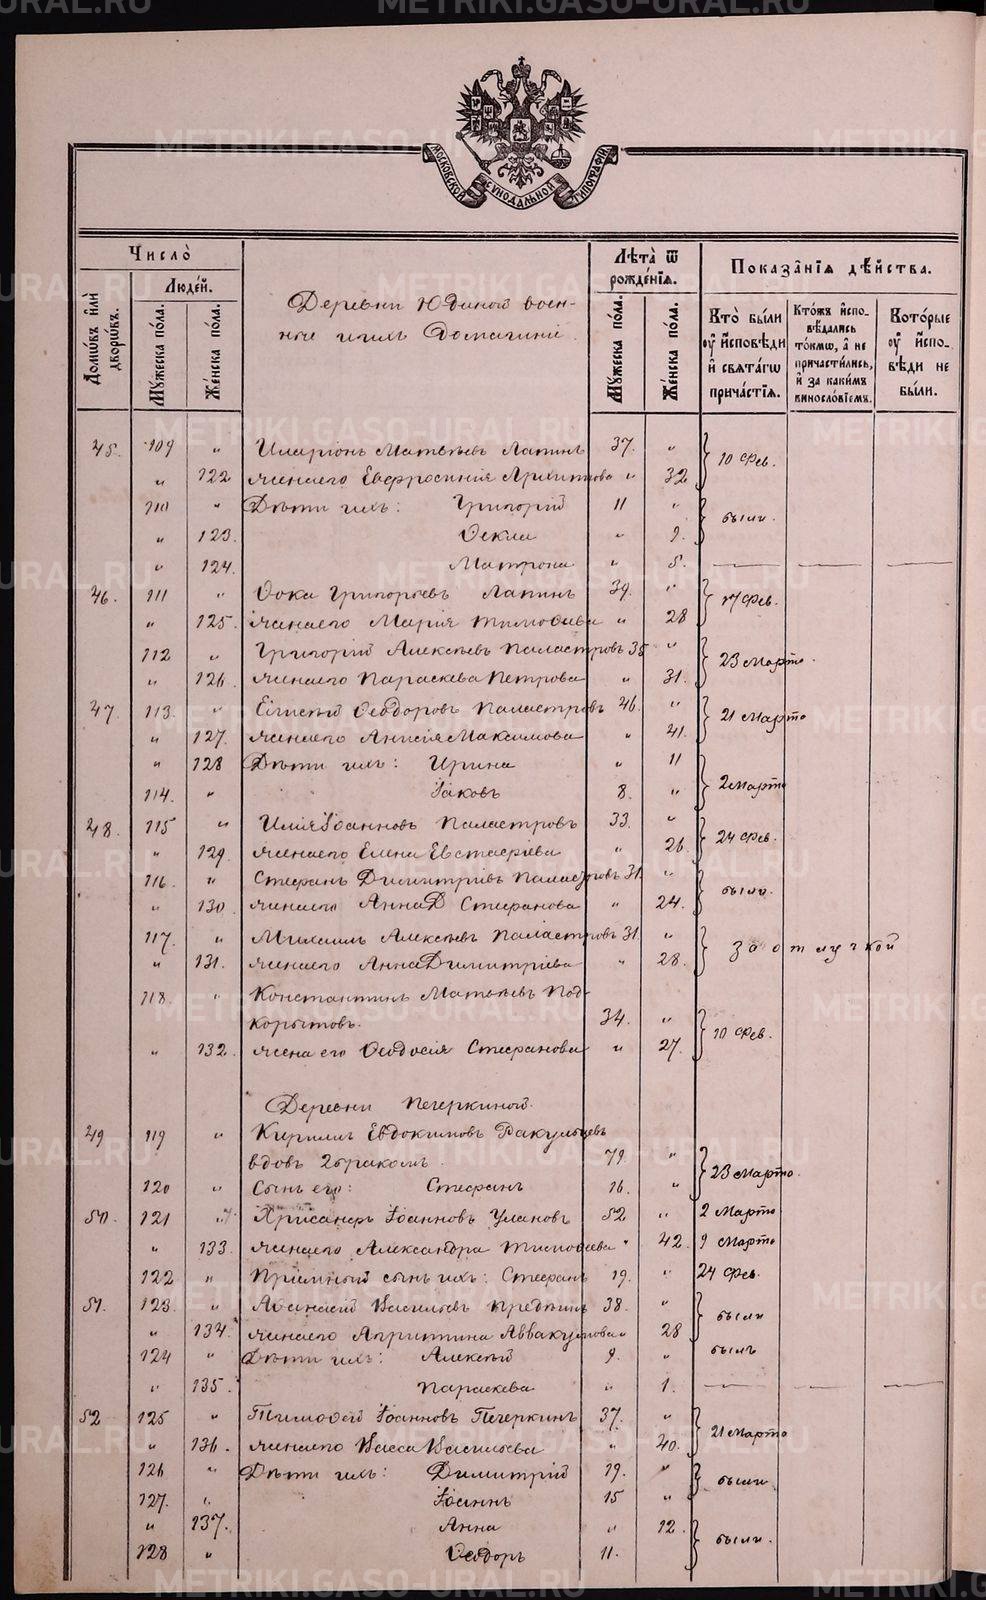 МОСКОВСКОЙ СУНОДАЛЬНОЙ ТИПОГРАФІИ
Число̀
Людей.
Домѡвъ и҆лѝ дворѡвъ.
Мꙋжеска по́ла.
Же́нска по́ла.
Деревни Юдиной воен-
ные и ихъ Домашніе.
Лѣта̀ ѿ рожде́нїѧ.
Мꙋжеска по́ла.
Же́нска по́ла.
Показа̂нїѧ дѣ́йства.
Кто̀ бы́ли ᲂу҆ и҆сповѣди и҆ свѧта́гѡ прича́стїѧ.
Кто́жъ и҆спо-вѣ́дались то́кмѡ, а҆ не причасти́лись, и҆ за каки́мъ винословїемъ.
Кото́рые ᲂу҆ и҆спо-вѣди не бы́ли.
45. 109 " Иларіонъ Матвѣевъ Лапинъ 37. " 10 Фев.
" 122 жена его Евфросинія Архипова " 32
110 " Дѣти ихъ: Григорій 11 " были.
" 123. Ѳекла " 9.
" 124. Матрона " 5. — — —
46. 111 " Ѳока Григорьевъ Лапинъ 39. " 17 Фев.
" 125. жена его Марія Тимоѳеева " 28
112 " Григорій Алексѣевъ Паластровъ 35 " 23 Марта.
" 126. жена его Параскева Петрова " 31.
47. 113. " Елисей Ѳеодоровъ Паластровъ 46. " 21 Марта
" 127. жена его Анисія Максимова " 41.
" 128 Дѣти ихъ: Ирина " 11 2 Марта
114. " Іаковъ 8. "
48. 115 " Илія Іоанновъ Паластровъ 33. " 24 Фев.
" 129. жена его Елена Евстафіева " 26.
116. " Стефанъ Димитріевъ Паластровъ 31. " были.
" 130. жена его Анна Стефанова " 24.
117. " Михаилъ Алексѣевъ Паластровъ 31. " За отлучкой
" 131. жена его Анна Димитріева " 28.
118. " Константинъ Матвѣевъ Под-
корытовъ. 34. " 10 Фев.
" 132. жена его Ѳеодосія Стефанова " 27.
Деревни Печеркиной.
49 119 " Кириллъ Евдокимовъ Ракульцевъ
вдовъ 2 бракомъ. 79. " 23 Марта.
120 " Сынъ его: Стефанъ 16. "
50. 121 " Хрисанфъ Іоанновъ Улановъ 52 " 2 Марта
" 133. жена его Александра Тимоѳеева " 42. 9 Марта
122 " Пріемный сынъ ихъ: Стефанъ 19. " 24 Фев.
51. 123. " Аѳанасій Васильевъ 38. " были
" 134. жена его Апритина Аввакумова " 28
124 " Дѣти ихъ: Алексѣй 9. " былъ
" 135. Параскева " 1. — — —
52 125 " Тимоѳей Іоанновъ Печеркинъ 37. " 21 Марта
" 136. жена его Васса Васильева " 40.
126 " Дѣти ихъ: Димитрій 19. " были
127. " Іоаннъ 15 "
" 137. Анна " 12. были.
128 " Ѳеодоръ 11.
METRIKI.GASO-URAL.RU